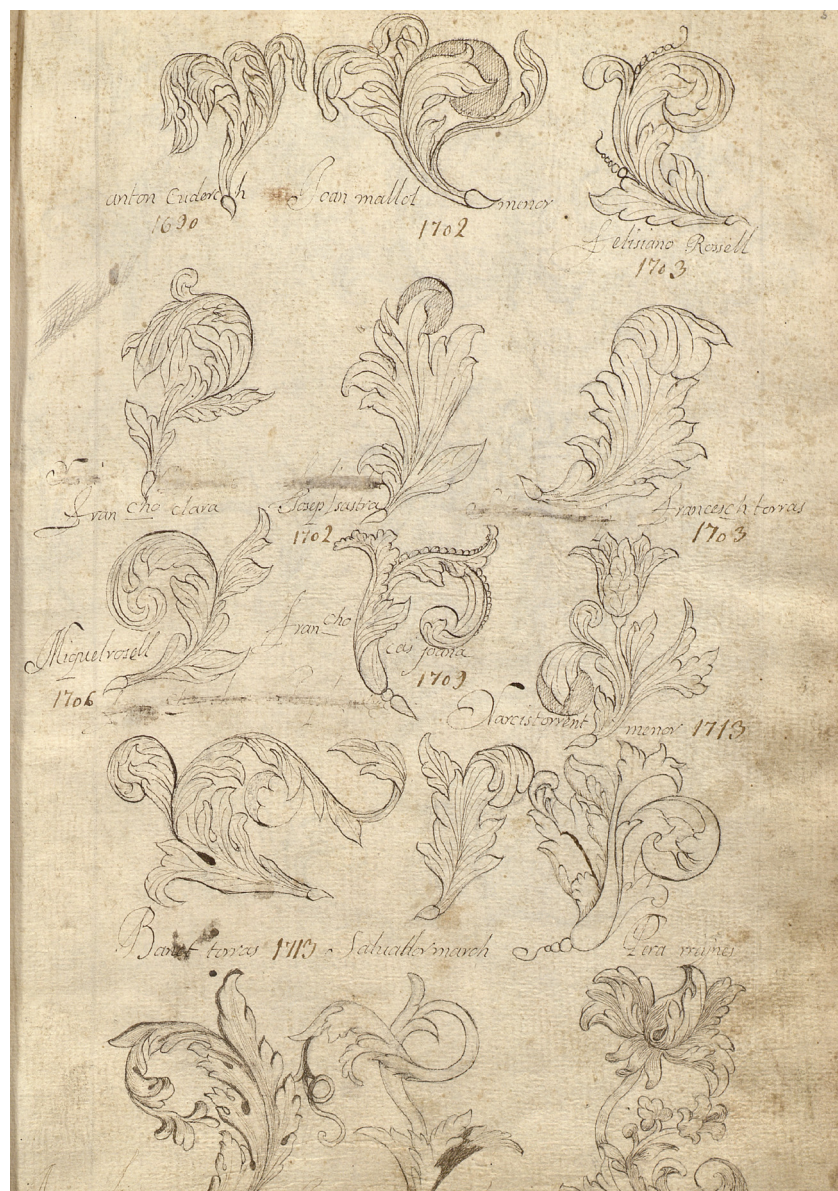 anton Cuderch
1690
Joan mallol menor
1702
felisiano Rosell
1703
fran cho clara
Josep sastra
1702
francesch torras
1703
Miquel rosell
1706
fran cho cas joana
1709
Narcis torrent menor 1713
Banet torras 1713
Saluador march
Pera